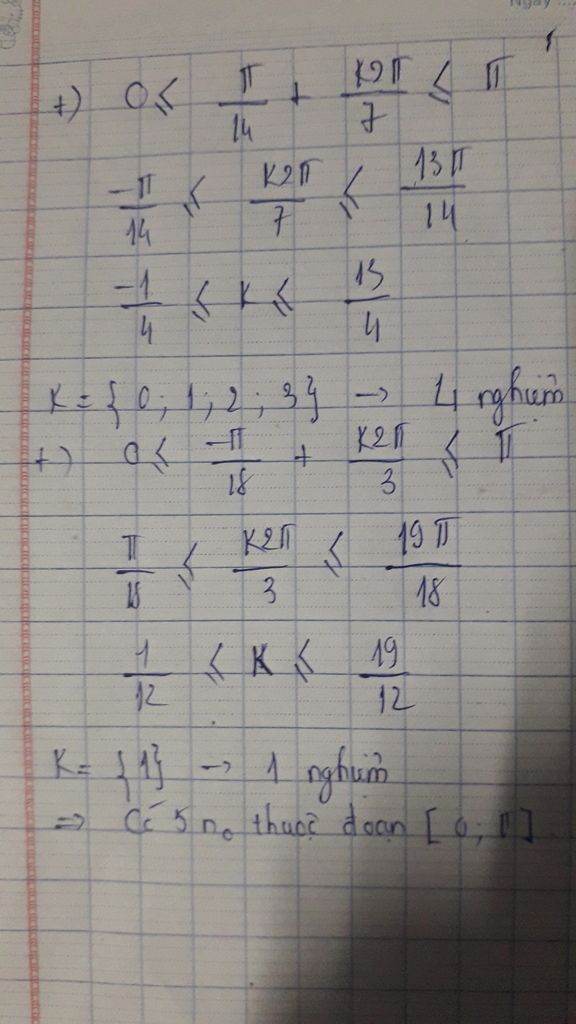 +) 0 ≤ π/14 + k2π/7 ≤ π
-π/14 ≤ k2π/7 ≤ 13π/14
-1/4 ≤ k ≤ 13/4
k = { 0 ; 1 ; 2 ; 3 } → 4 nghiệm
+) 0 ≤ -π/18 + k2π/3 ≤ π
π/18 ≤ k2π/3 ≤ 19π/18
1/12 ≤ k ≤ 19/12
k = { 1 } → 1 nghiệm
=> Có 5 no thuộc đoạn [ 0 ; π ]